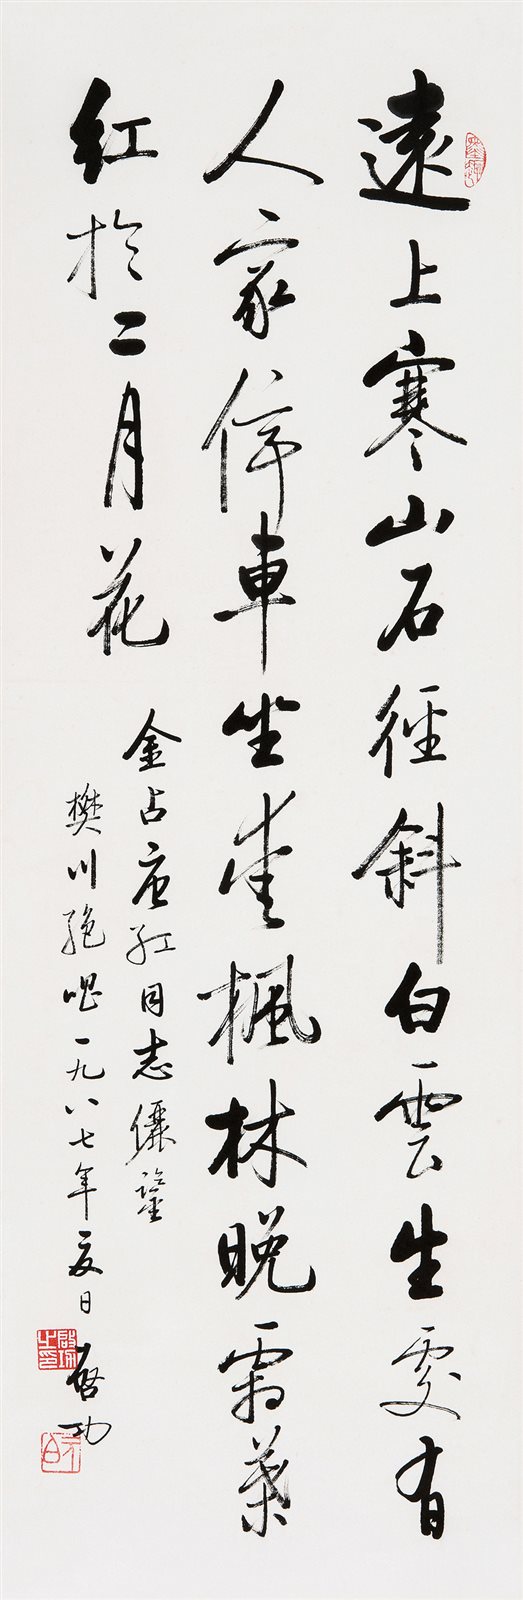 遠上寒山石徑斜白雲生處有
人家停車坐愛楓林晚霜葉
紅於二月花
金占唐紅同志儷鑒
樊川絕唱一九八七年夏日啟功
啟功之印
元白